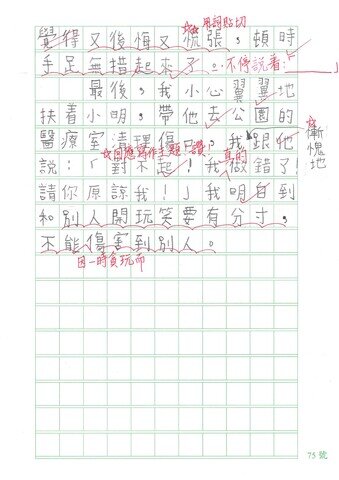 用詞貼切
覺得又後悔又慌張，頓時
手足無措起來了。不停說着：「　　」
最後，我小心翼翼地
扶着小明，帶他去公園的
醫療室清理傷口。我跟他
慚愧地
回應寫作主題，讚！
真的
說：「對不起！我做錯了！
請你原諒我！」我明白到
和別人開玩笑要有分寸，
不能傷害到別人。
因一時貪玩而
75號